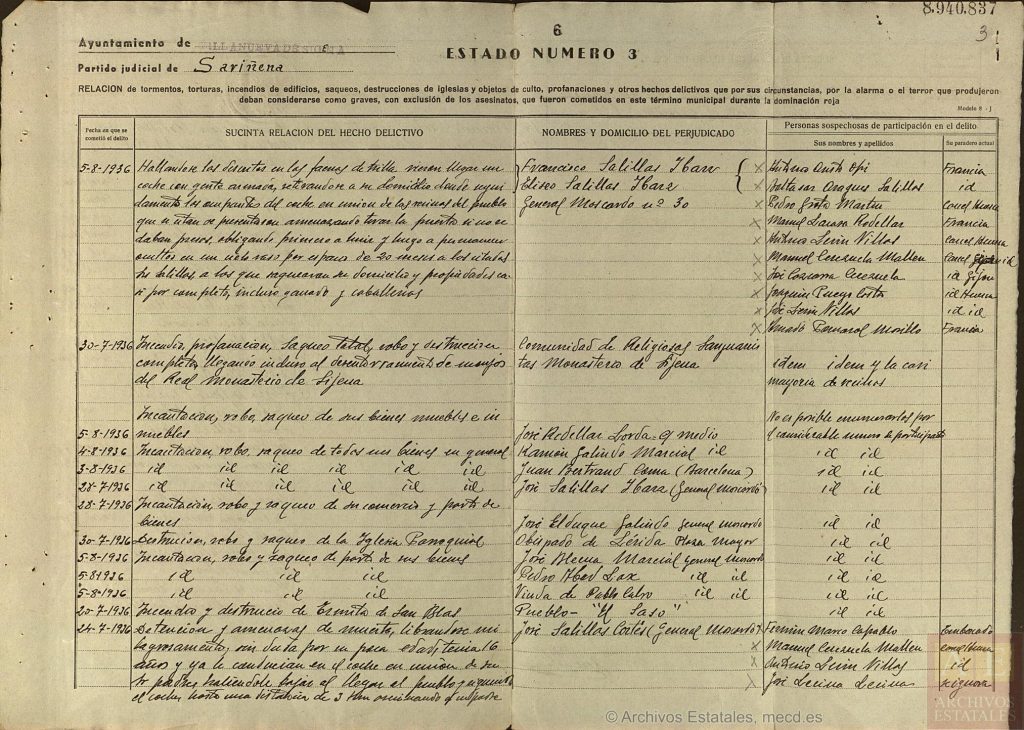 8.940.837
6
3
Ayuntamiento de VILLANUEVA DE SIGENA
ESTADO NUMERO 3
Partido judicial de Sariñena
RELACION de tormentos, torturas, incendios de edificios, saqueos, destrucciones de iglesias y objetos de culto, profanaciones y otros hechos delictivos que por sus circunstancias, por la alarma o el terror que produjeron
deban considerarse como graves, con exclusión de los asesinatos, que fueron cometidos en este término municipal durante la dominación roja
Modelo 8 - j
Fecha en que se cometió el delito
SUCINTA RELACION DEL HECHO DELICTIVO
NOMBRES Y DOMICILIO DEL PERJUDICADO
Personas sospechosas de participación en el delito
Sus nombres y apellidos
Su paradero actual
5-8-1936 Hallandose los descritos en las faenas de trilla vieron llegar un Francisco Salillas Ibarz Francia
coche con gente armada, retirandose a su domicilio donde Eliseo Salillas Ibarz Baltasar Salillas id
damente los ocupantes del coche en union de los del pueblo General Moscardo nº 30 Pedro Martin Carcel Huesca
que se presentaron amenazando tirar la puerta si no se Manuel Redellar Francia
daban presos, obligando primero a huir y luego a permanecer Antonio Villas Carcel Huesca
ocultos en un por espacio de 20 meses a los citados Manuel Cerezuela Mallen Carcel id
Salillas, a los que saquearon su domicilio y propiedades ca José Cerezuela id Gijon
si por completo, incluso ganado y caballerias Joaquin Pueyo Costa id Huesca
José Villas id id
Amado Morillo Francia
30-7-1936 Incendio, profanacion, saqueo total, robo y destruccion Comunidad de Religiosas Sanjuanis
completa, llegando incluso al desenterramiento de monjas tas Monasterio de Sijena idem idem y la casi
del Real Monasterio de Sijena mayoria de vecinos
Incautacion, robo, saqueo de sus bienes muebles e in No es posible enumerarlos por
5-8-1936 muebles José Redellar Lorda - C/ medio el considerable numero de
4-8-1936 Incautacion, robo, saqueo de todos sus bienes en general Ramón Galindo Marcial id id id
3-8-1936 id id id id id Juan Bertrand Coma (Barcelona) id id
28-7-1936 id id id id id id José Salillas Ibarz (General Moscardó) id id
28-7-1936 Incautación, robo y saqueo de su comercio y parte de
bienes José Elduque Galindo General Moscardo id id
30-7-1936 Destruccion, robo y saqueo de la Iglesia Parroquial Obispado de Lérida Plaza Mayor id id
5-8-1936 Incautacion, robo y saqueo de parte de sus bienes José Blecua Marcial General Moscardo id id
5-8-1936 id id id Pedro Abad Lax id id id id
5-8-1936 id id id Viuda de Pablo Calvo id id id id
20-7-1936 Incendio y destruccio de Ermita de San Blas Pueblo - "El Saso" id id
24-7-1936 Detencion y amenazas de muerte, librandose mi José Salillas Cortés (General Moscardó) Fermin Marco Capablo
lagrosamente, sin duda por su poca edad, tenia 16 Manuel Cerezuela Mallen
años y ya le conducian en el coche en union de su Antonio Villas id
padre haciendole bajar al llegar al pueblo José Lecina Lecina se ignora
el coche hasta una distancia de 3 Km
© Archivos Estatales, mecd.es
ARCHIVOS
ESTATALES